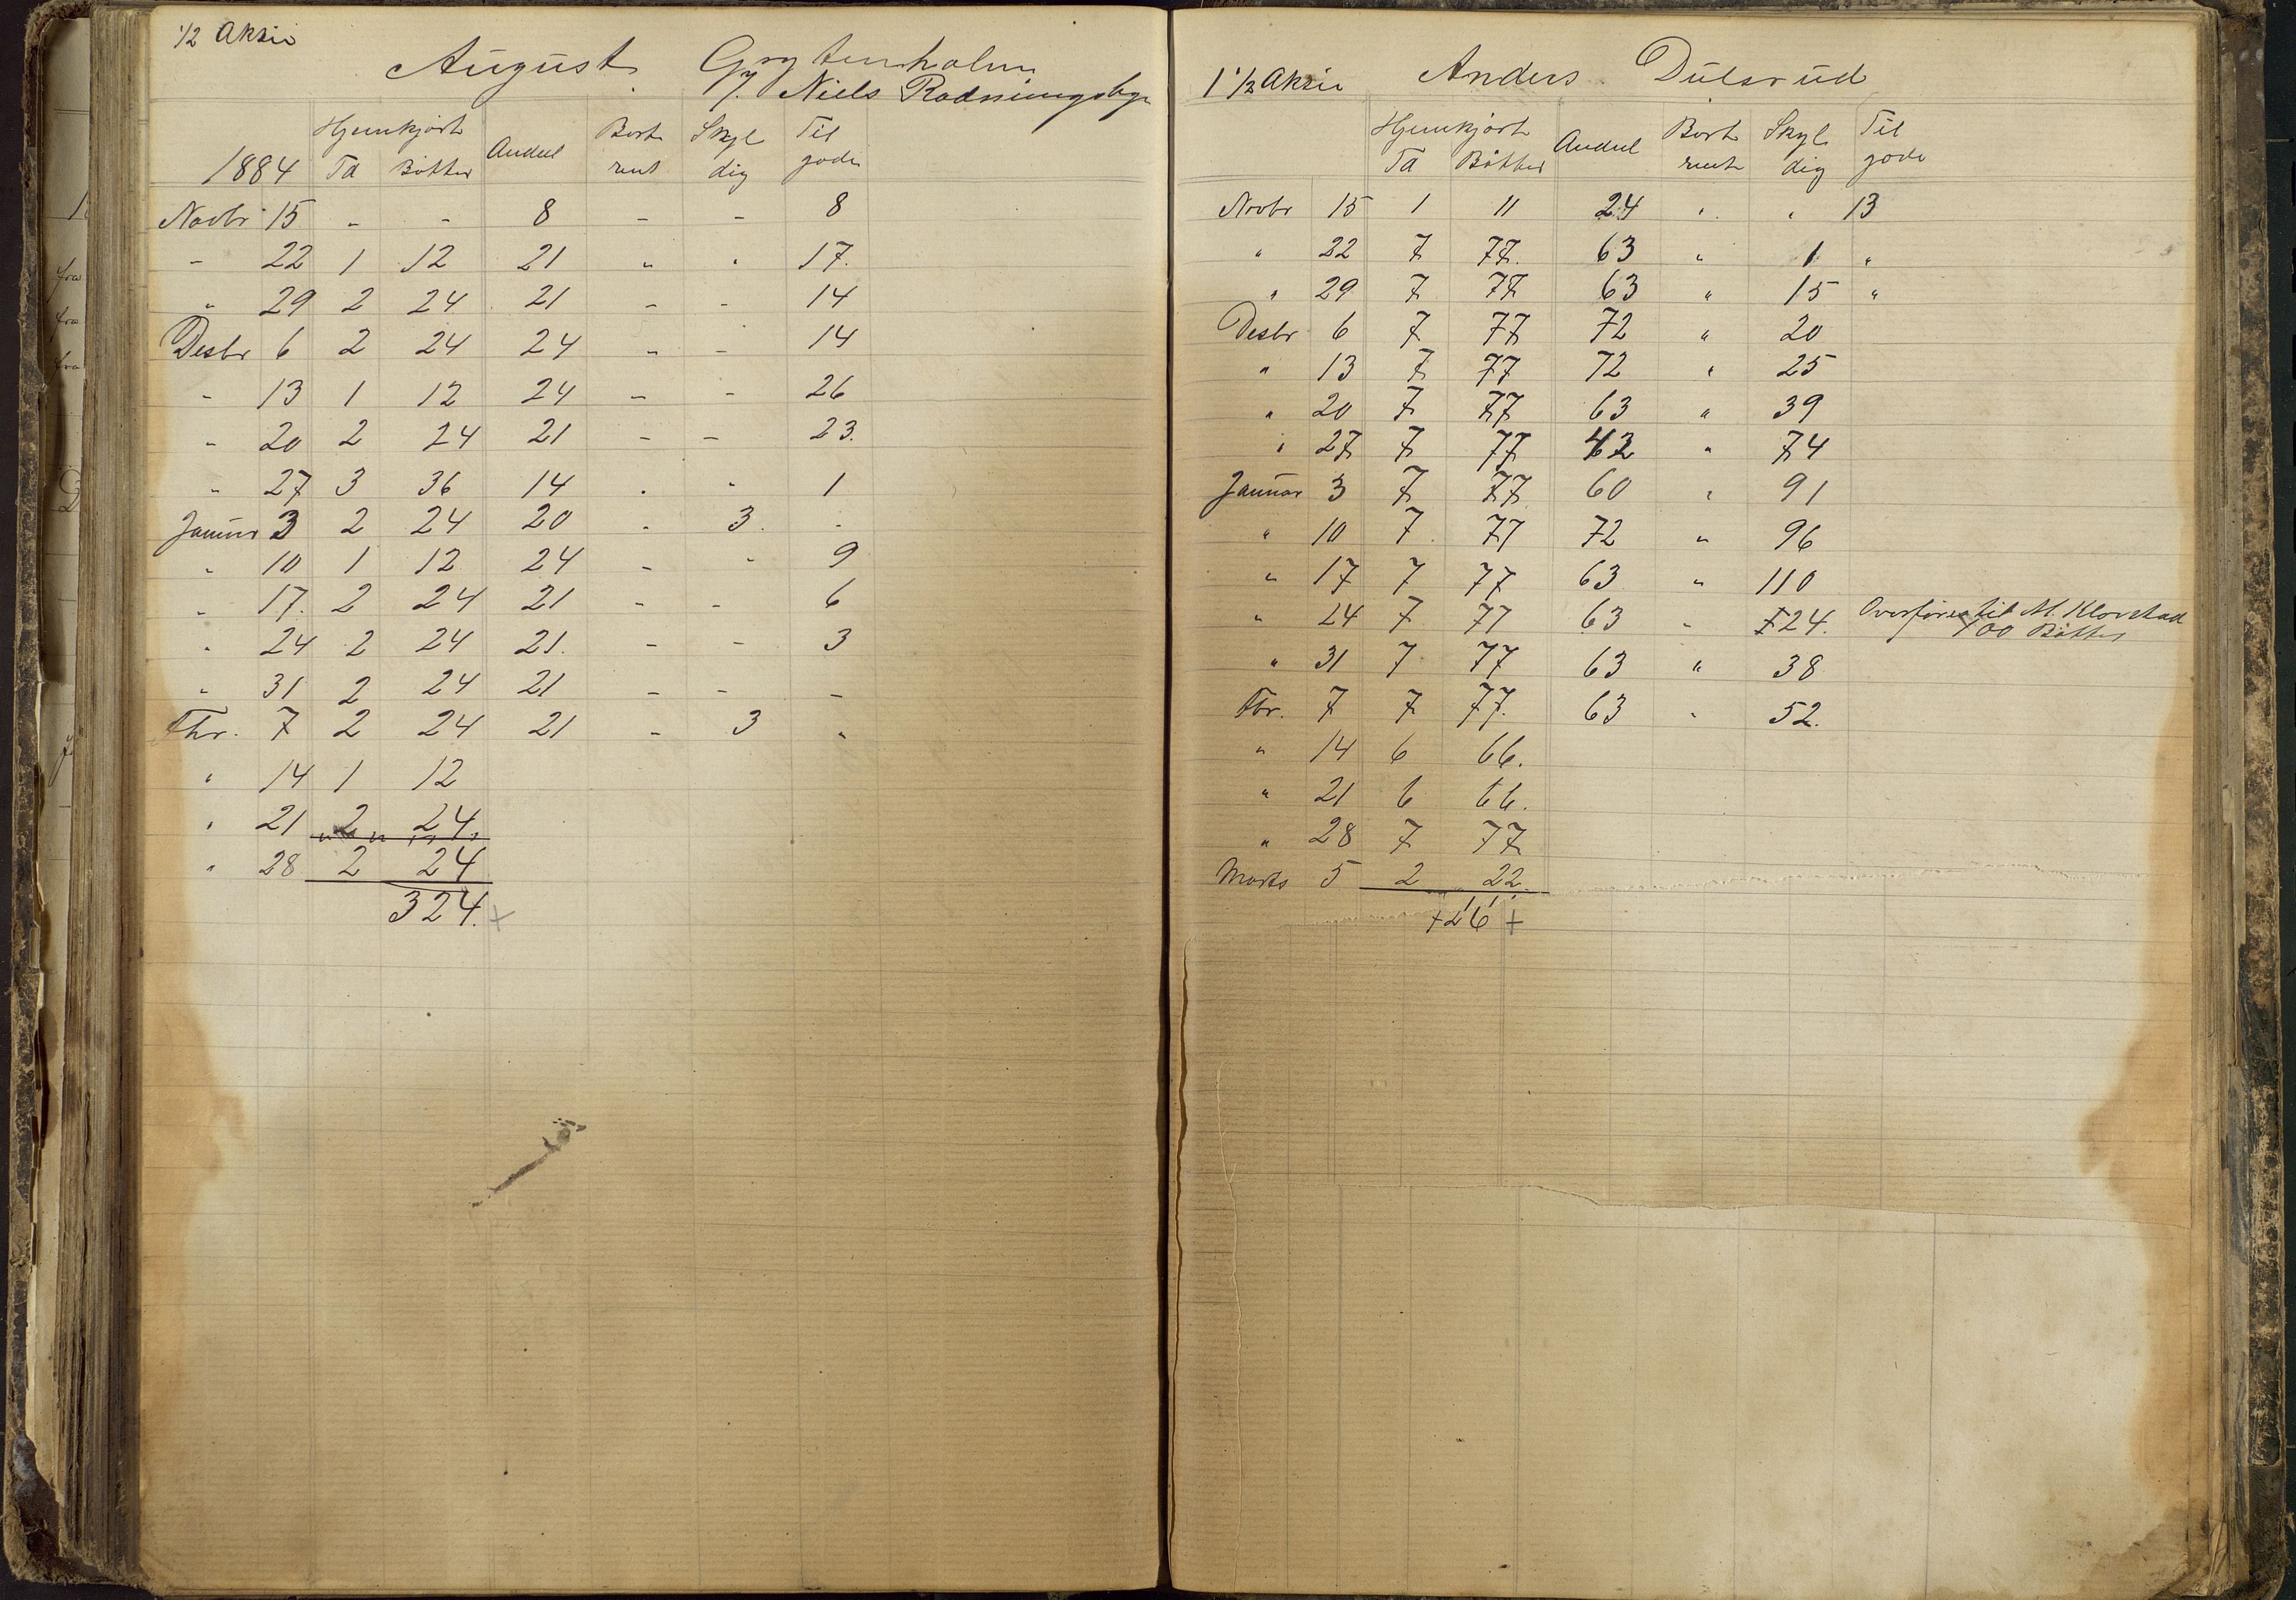 1/2 Aksie
August Grytenholm
v/ Niels Rodningsbye
Hjemkjørt Andeel Bort Skyl Til
1884 Td Bøtter rent dig gode
Novbr 15 - - 8 - - 8
- 22 1 12 21 " " 17.
" 29 2 24 21 - - 14
Desbr 6 2 24 24 - - 14
- 13 1 12 24 - - 26
- 20 2 24 21 - - 23.
- 27 3 36 14 . - 1
Januar 3 2 24 20 - 3. -
- 10 1 12 24 - - 9
- 17. 2 24 21 - - 6
" 24 2 24 21. - - 3
- 31 2 24 21 - - -
Fbr. 7 2 24 21 - 3 "
" 14 1 12
" 21 2 24.
" 28 2 24
324.+
1 1/2 Aksie Anders Dülsrüd
Hjemkjørt Andeel Bort Skyl Til
Td Bøtter rent dig gode
Novbr 15 1 11 24 " " 13
" 22 7 77. 63 " 1 "
" 29 7 77 63 " 15 "
Desbr 6 7 77 72 " 20
" 13 7 77 72 " 25
" 20 7 77 63 " 39
" 27 7 77 42 " 74
Januar 3 7 77 60 " 91
" 10 7 77 72 " 96
" 17 7 77 63 " 110
" 24 7 77 63 " 124. Overføres til M. Klovstad
100 Bøtter
" 31 7 77 63 " 38
Fbr. 7 7 77. 63 " 52.
" 14 6 66.
" 21 6 66.
" 28 7 77
Marts 5 2 22